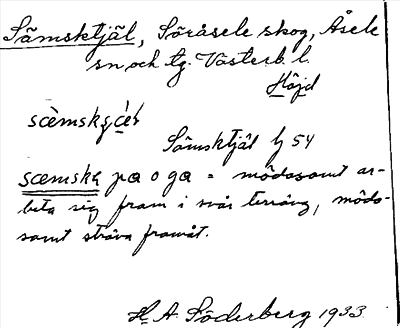 Sämsktjäl, Söråsele skog, Åsele
sn och tg. Västerb. l.
Höjd
Sämsktjäl bj 54
pa o ga = mödosamt ar-
beta sig fram i svår terräng, mödo-
samt sträva framåt.
H. A. Söderberg 1933